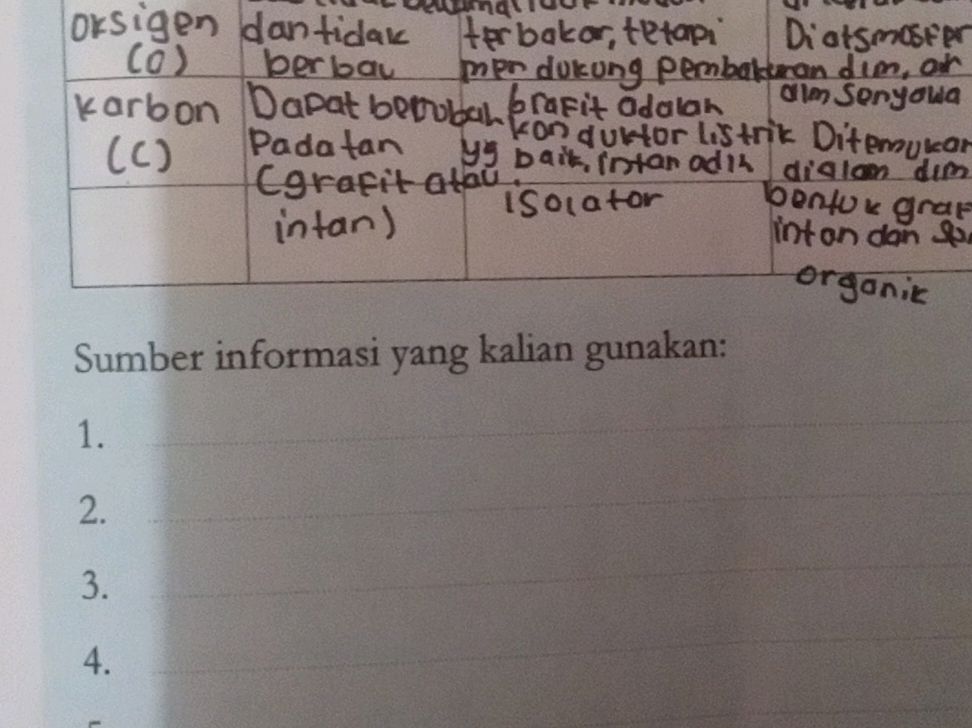 oksigen dan tidak terbakar, tetapi Diatsmosfer
(O) berbau mendukung pembakaran dlm, air
karbon Dapat berubah grafit adalah dlm senyawa
(C) Padatan konduktor listrik Ditemukan
(grafit atau yg baik, intan adlh dialam dlm
intan) isolator bentuk graf
intan dan
organik
Sumber informasi yang kalian gunakan:
1.
2.
3.
4.